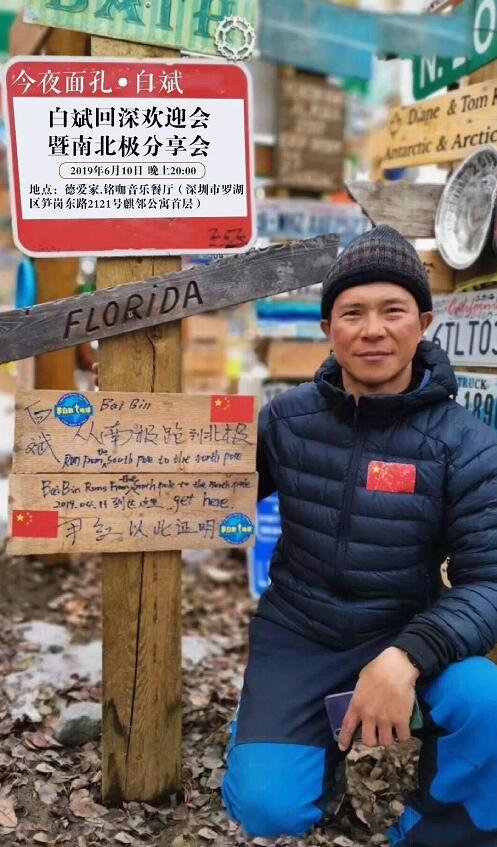 BATH
今夜面孔•白斌
白斌回深欢迎会
暨南北极分享会
2019年6月10日 晚上20:00
地点：德爱家.铭咖音乐餐厅（深圳市罗湖
区笋岗东路2121号麒邻公寓首层）
Diane & Tom
Antarctic & Arctic
FLORiDA
6TLT03
TRUCK
189
白斌
Bai Bin
从南极跑到北极
Run from the south pole to the north pole
Bai Bin Runs from the south pole to the north pole
2019.04.11 到达这里 get here.
以此证明